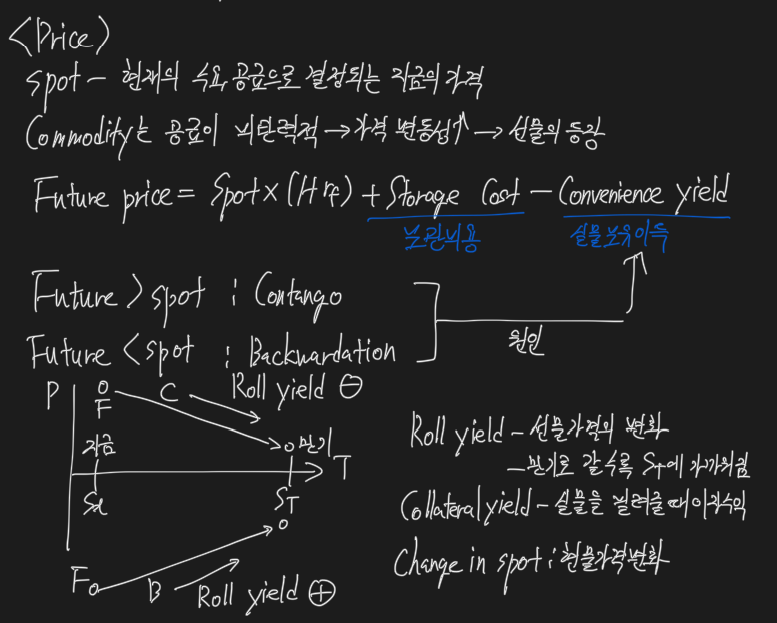 <Price>
Spot - 현재의 수요 공급으로 결정되는 지금의 가격
Commodity는 공급이 비탄력적 → 가격 변동성↑ → 선물의 등장
Future price = Spot × (1+rf) + Storage Cost - Convenience yield
보관비용
실물보유이득
Future > spot : Contango
Future < spot : Backwardation
원인
P
F
C
Roll yield ⊖
지금
만기
T
ST
F
B
Roll yield ⊕
Roll yield - 선물가격의 변화
- 만기로 갈수록 ST에 가까워짐
Collateral yield - 실물을 빌려줄 때 이자수익
Change in spot : 현물가격변화